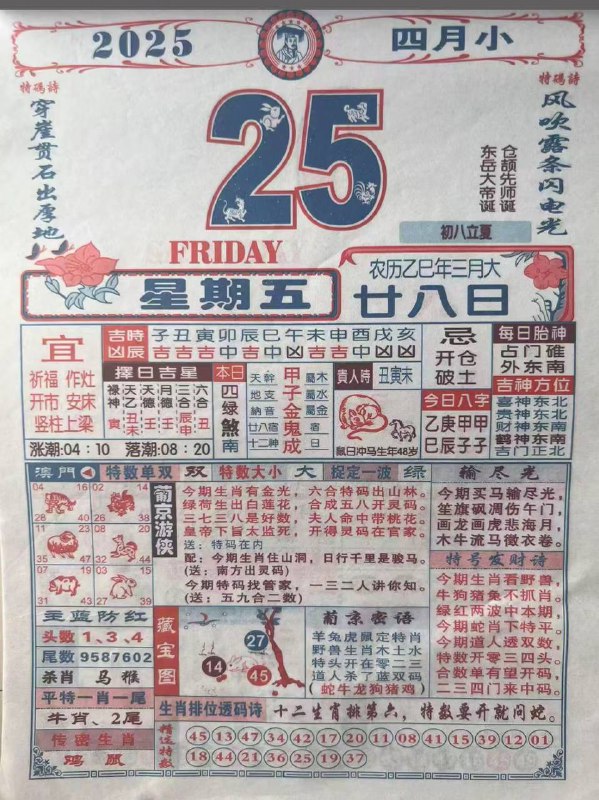 2025
四月小
特碼詩
穿崖贯石出厚地
特碼詩
风吹露条闪电光
25
仓颉先师诞
东岳大帝诞
初八立夏
FRIDAY
星期五
农历乙巳年三月大
廿八日
宜
祈福 作灶
开市 安床
竖柱 上梁
吉時 子丑寅卯辰巳午未申酉戌亥
凶辰 吉吉吉中中凶凶吉吉中凶中
擇日吉星
禄神 寅
天乙 丑未
天德 丁
月德 壬
三合 辰申
六合 丑
本日
四绿煞南
天幹 甲 屬木
地支 子 屬水
納音 金 屬金
廿八宿 鬼 宿
十二神 成 日
貴人時 丑寅未
鼠日冲马生年48岁
忌
开仓
破土
今日八字
乙庚甲甲
巳辰子子
每日胎神
占门碓
外东南
吉神方位
喜神东北
贵神东北
财神东南
鹤神东南
吉门正北
涨潮:04:10 落潮:08:20
澳門 特数单双 双 特数大小 大 捉定一波 绿
输尽光
04 16 28 40
02 14 26 38
11 23 35 47
08 20 32 44
07 19 31 43
03 15 27 39
葡京游侠
今期生肖有金光，六合特码出山林。
绿荷生出白莲花，合成五八开灵码。
三七三八是好数，夫人命中带桃花。
皇帝下旨太监死，开得灵码在官家。
送：特码在内
配：今期生肖住山洞，日行千里是骏马。
(送：南方出灵码)
今期特码找管家，一三二人讲你知。
(送：五九合二数)
今期买马输尽光，
笙旗飒凋伤午门，
画龙画虎悲海月，
木牛流马微衣卷。
特号发财诗
今期生肖看野兽，
牛狗猪兔不抓肖。
绿红两波中本期，
今期蛇肖下特平。
今期道人透双数，
特数开零三四头。
合数单有望开码，
二三四门来中码。
主蓝防红
头数 1、3、4
尾数 9587602
杀肖 马 猴
平特一肖一尾
牛肖、2尾
传密生肖
鸡 鼠
藏宝图
27
14
45
葡京密语
羊兔虎鼠定特肖
野兽生肖木土水
特头开在零二三
道人杀了蓝双码
(蛇牛龙狗猪鸡)
生肖排位透码诗 十二生肖排第六，特数要开就问蛇。
精选特数
45 13 47 34 42 17 20 11 08 41 15 39 12 01
18 44 21 36 25 19 37